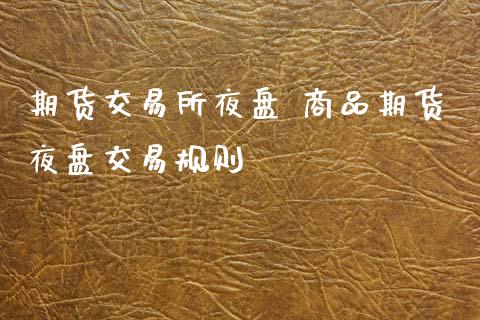 期货交易所夜盘 商品期货
夜盘交易规则